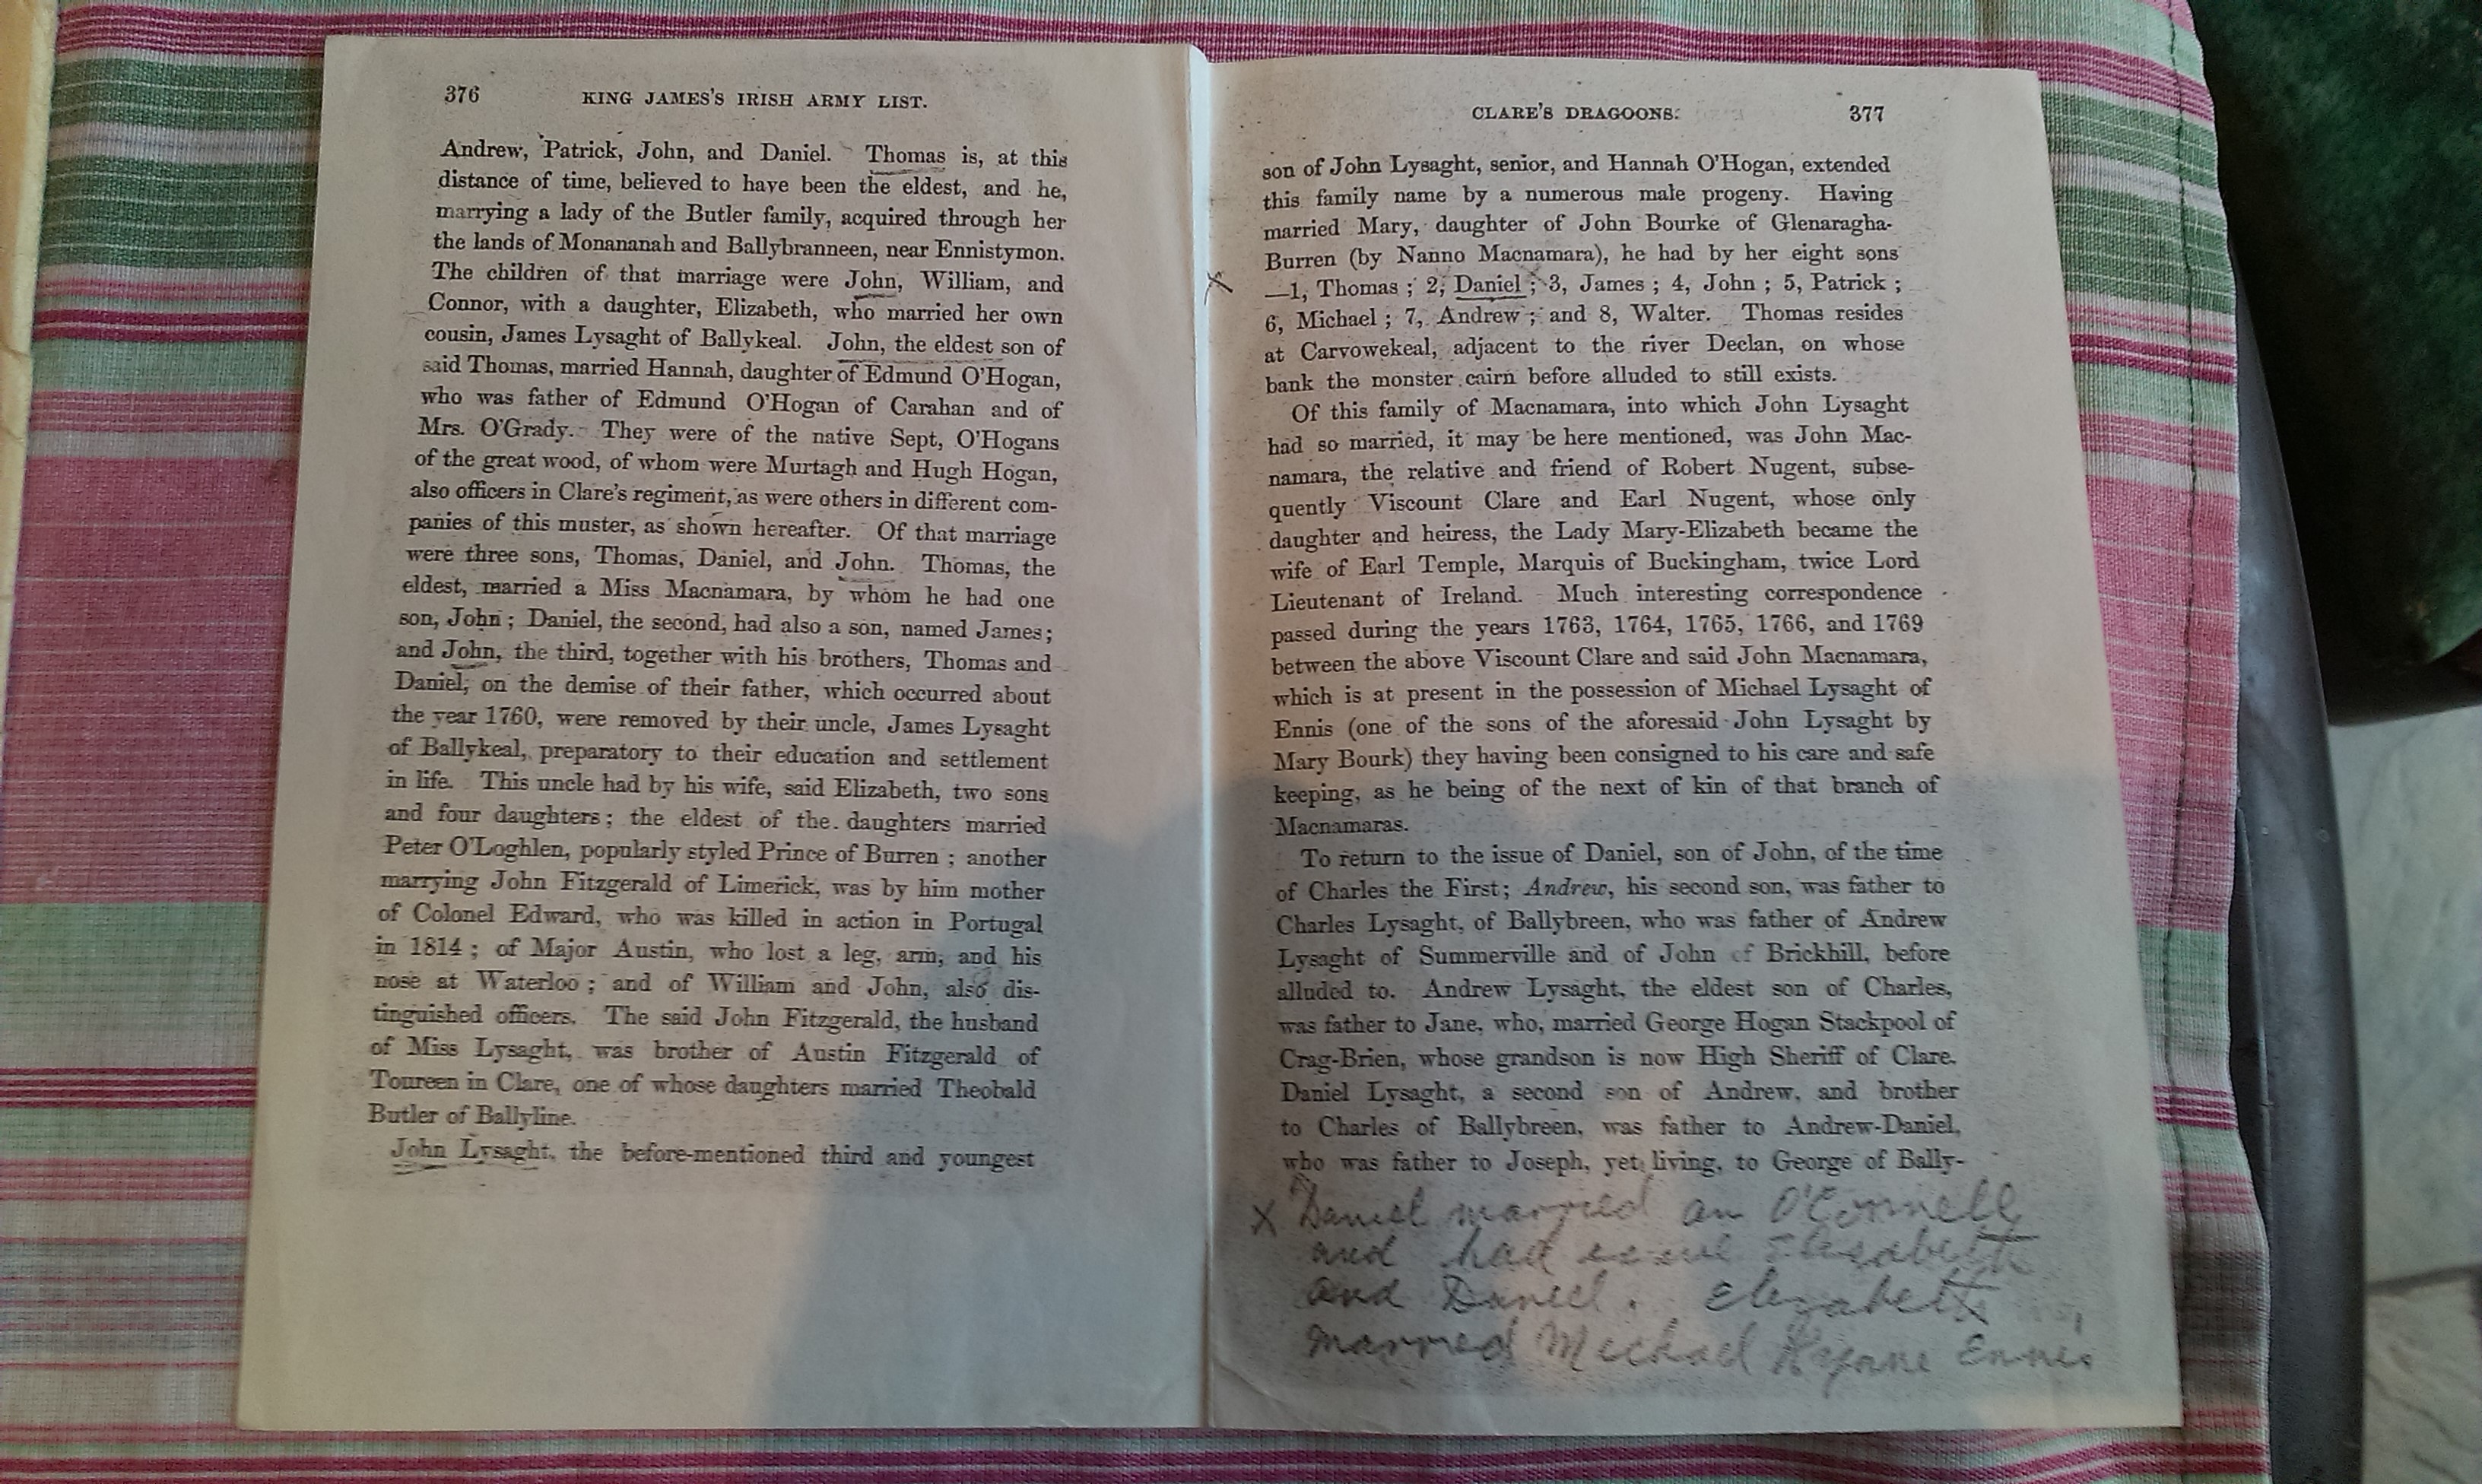 376 KING JAMES'S IRISH ARMY LIST.
Andrew, Patrick, John, and Daniel. Thomas is, at this
distance of time, believed to have been the eldest, and he,
marrying a lady of the Butler family, acquired through her
the lands of Monananah and Ballybranneen, near Ennistymon.
The children of that marriage were John, William, and
Connor, with a daughter, Elizabeth, who married her own
cousin, James Lysaght of Ballykeal. John, the eldest son of
said Thomas, married Hannah, daughter of Edmund O'Hogan,
who was father of Edmund O'Hogan of Carahan and of
Mrs. O'Grady. They were of the native Sept, O'Hogans
of the great wood, of whom were Murtagh and Hugh Hogan,
also officers in Clare's regiment, as were others in different com-
panies of this muster, as shown hereafter. Of that marriage
were three sons, Thomas, Daniel, and John. Thomas, the
eldest, married a Miss Macnamara, by whom he had one
son, John; Daniel, the second, had also a son, named James;
and John, the third, together with his brothers, Thomas and
Daniel, on the demise of their father, which occurred about
the year 1760, were removed by their uncle, James Lysaght
of Ballykeal, preparatory to their education and settlement
in life. This uncle had by his wife, said Elizabeth, two sons
and four daughters; the eldest of the daughters married
Peter O'Loghlen, popularly styled Prince of Burren; another
marrying John Fitzgerald of Limerick, was by him mother
of Colonel Edward, who was killed in action in Portugal
in 1814; of Major Austin, who lost a leg, arm, and his
nose at Waterloo; and of William and John, also dis-
tinguished officers. The said John Fitzgerald, the husband
of Miss Lysaght, was brother of Austin Fitzgerald of
Toureen in Clare, one of whose daughters married Theobald
Butler of Ballyline.
John Lysaght, the before-mentioned third and youngest
CLARE'S DRAGOONS. 377
son of John Lysaght, senior, and Hannah O'Hogan, extended
this family name by a numerous male progeny. Having
married Mary, daughter of John Bourke of Glenaragha-
Burren (by Nanno Macnamara), he had by her eight sons
X —1, Thomas; 2, Daniel; 3, James; 4, John; 5, Patrick;
6, Michael; 7, Andrew; and 8, Walter. Thomas resides
at Carvowekeal, adjacent to the river Declan, on whose
bank the monster cairn before alluded to still exists.
Of this family of Macnamara, into which John Lysaght
had so married, it may be here mentioned, was John Mac-
namara, the relative and friend of Robert Nugent, subse-
quently Viscount Clare and Earl Nugent, whose only
daughter and heiress, the Lady Mary-Elizabeth became the
wife of Earl Temple, Marquis of Buckingham, twice Lord
Lieutenant of Ireland. Much interesting correspondence
passed during the years 1763, 1764, 1765, 1766, and 1769
between the above Viscount Clare and said John Macnamara,
which is at present in the possession of Michael Lysaght of
Ennis (one of the sons of the aforesaid John Lysaght by
Mary Bourk) they having been consigned to his care and safe
keeping, as he being of the next of kin of that branch of
Macnamaras.
To return to the issue of Daniel, son of John, of the time
of Charles the First; Andrew, his second son, was father to
Charles Lysaght, of Ballybreen, who was father of Andrew
Lysaght of Summerville and of John of Brickhill, before
alluded to. Andrew Lysaght, the eldest son of Charles,
was father to Jane, who, married George Hogan Stackpool of
Crag-Brien, whose grandson is now High Sheriff of Clare.
Daniel Lysaght, a second son of Andrew, and brother
to Charles of Ballybreen, was father to Andrew-Daniel,
who was father to Joseph, yet living, to George of Bally-
X Daniel married an O'Connell
and had issue Elizabeth
and Daniel. Elizabeth
married Michael Ennis